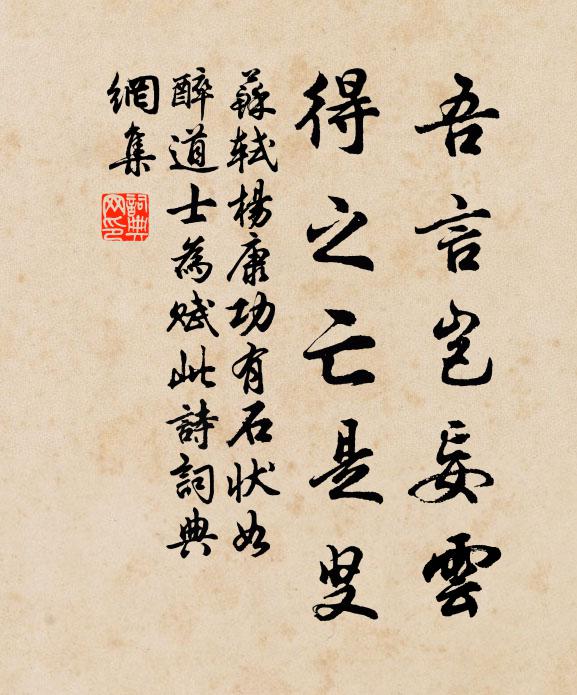 吾言豈妄雲
得之亡是叟
蘇軾楊康功有石狀如
醉道士為賦此詩詞典
網集
詞典网印